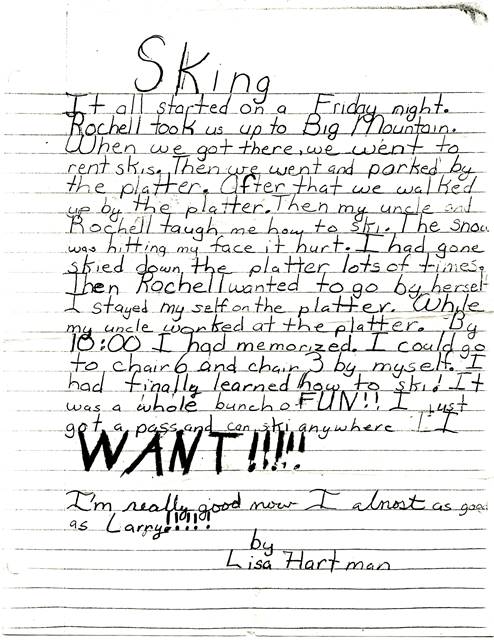 SKing
It all started on a Friday night.
Rochell took us up to Big Mountain.
When we got there, we went to
rent skis. Then we went and parked by
the platter. After that we walked
up by the platter. Then my uncle and
Rochell taugh me how to ski. The snow
was hitting my face it hurt. I had gone
skied down the platter lots of times.
Then Rochell wanted to go by herself
I stayed my self on the platter. While
my uncle worked at the platter. By
10:00 I had memorized. I could go
to chair 6 and chair 3 by myself. I
had finally learned how to ski! It
was a whole bunch o FUN!! I just
got a pass and can ski anywhere I
WANT!!!!!
I'm really good now I almost as good
as Larry!!!!!
by
Lisa Hartman